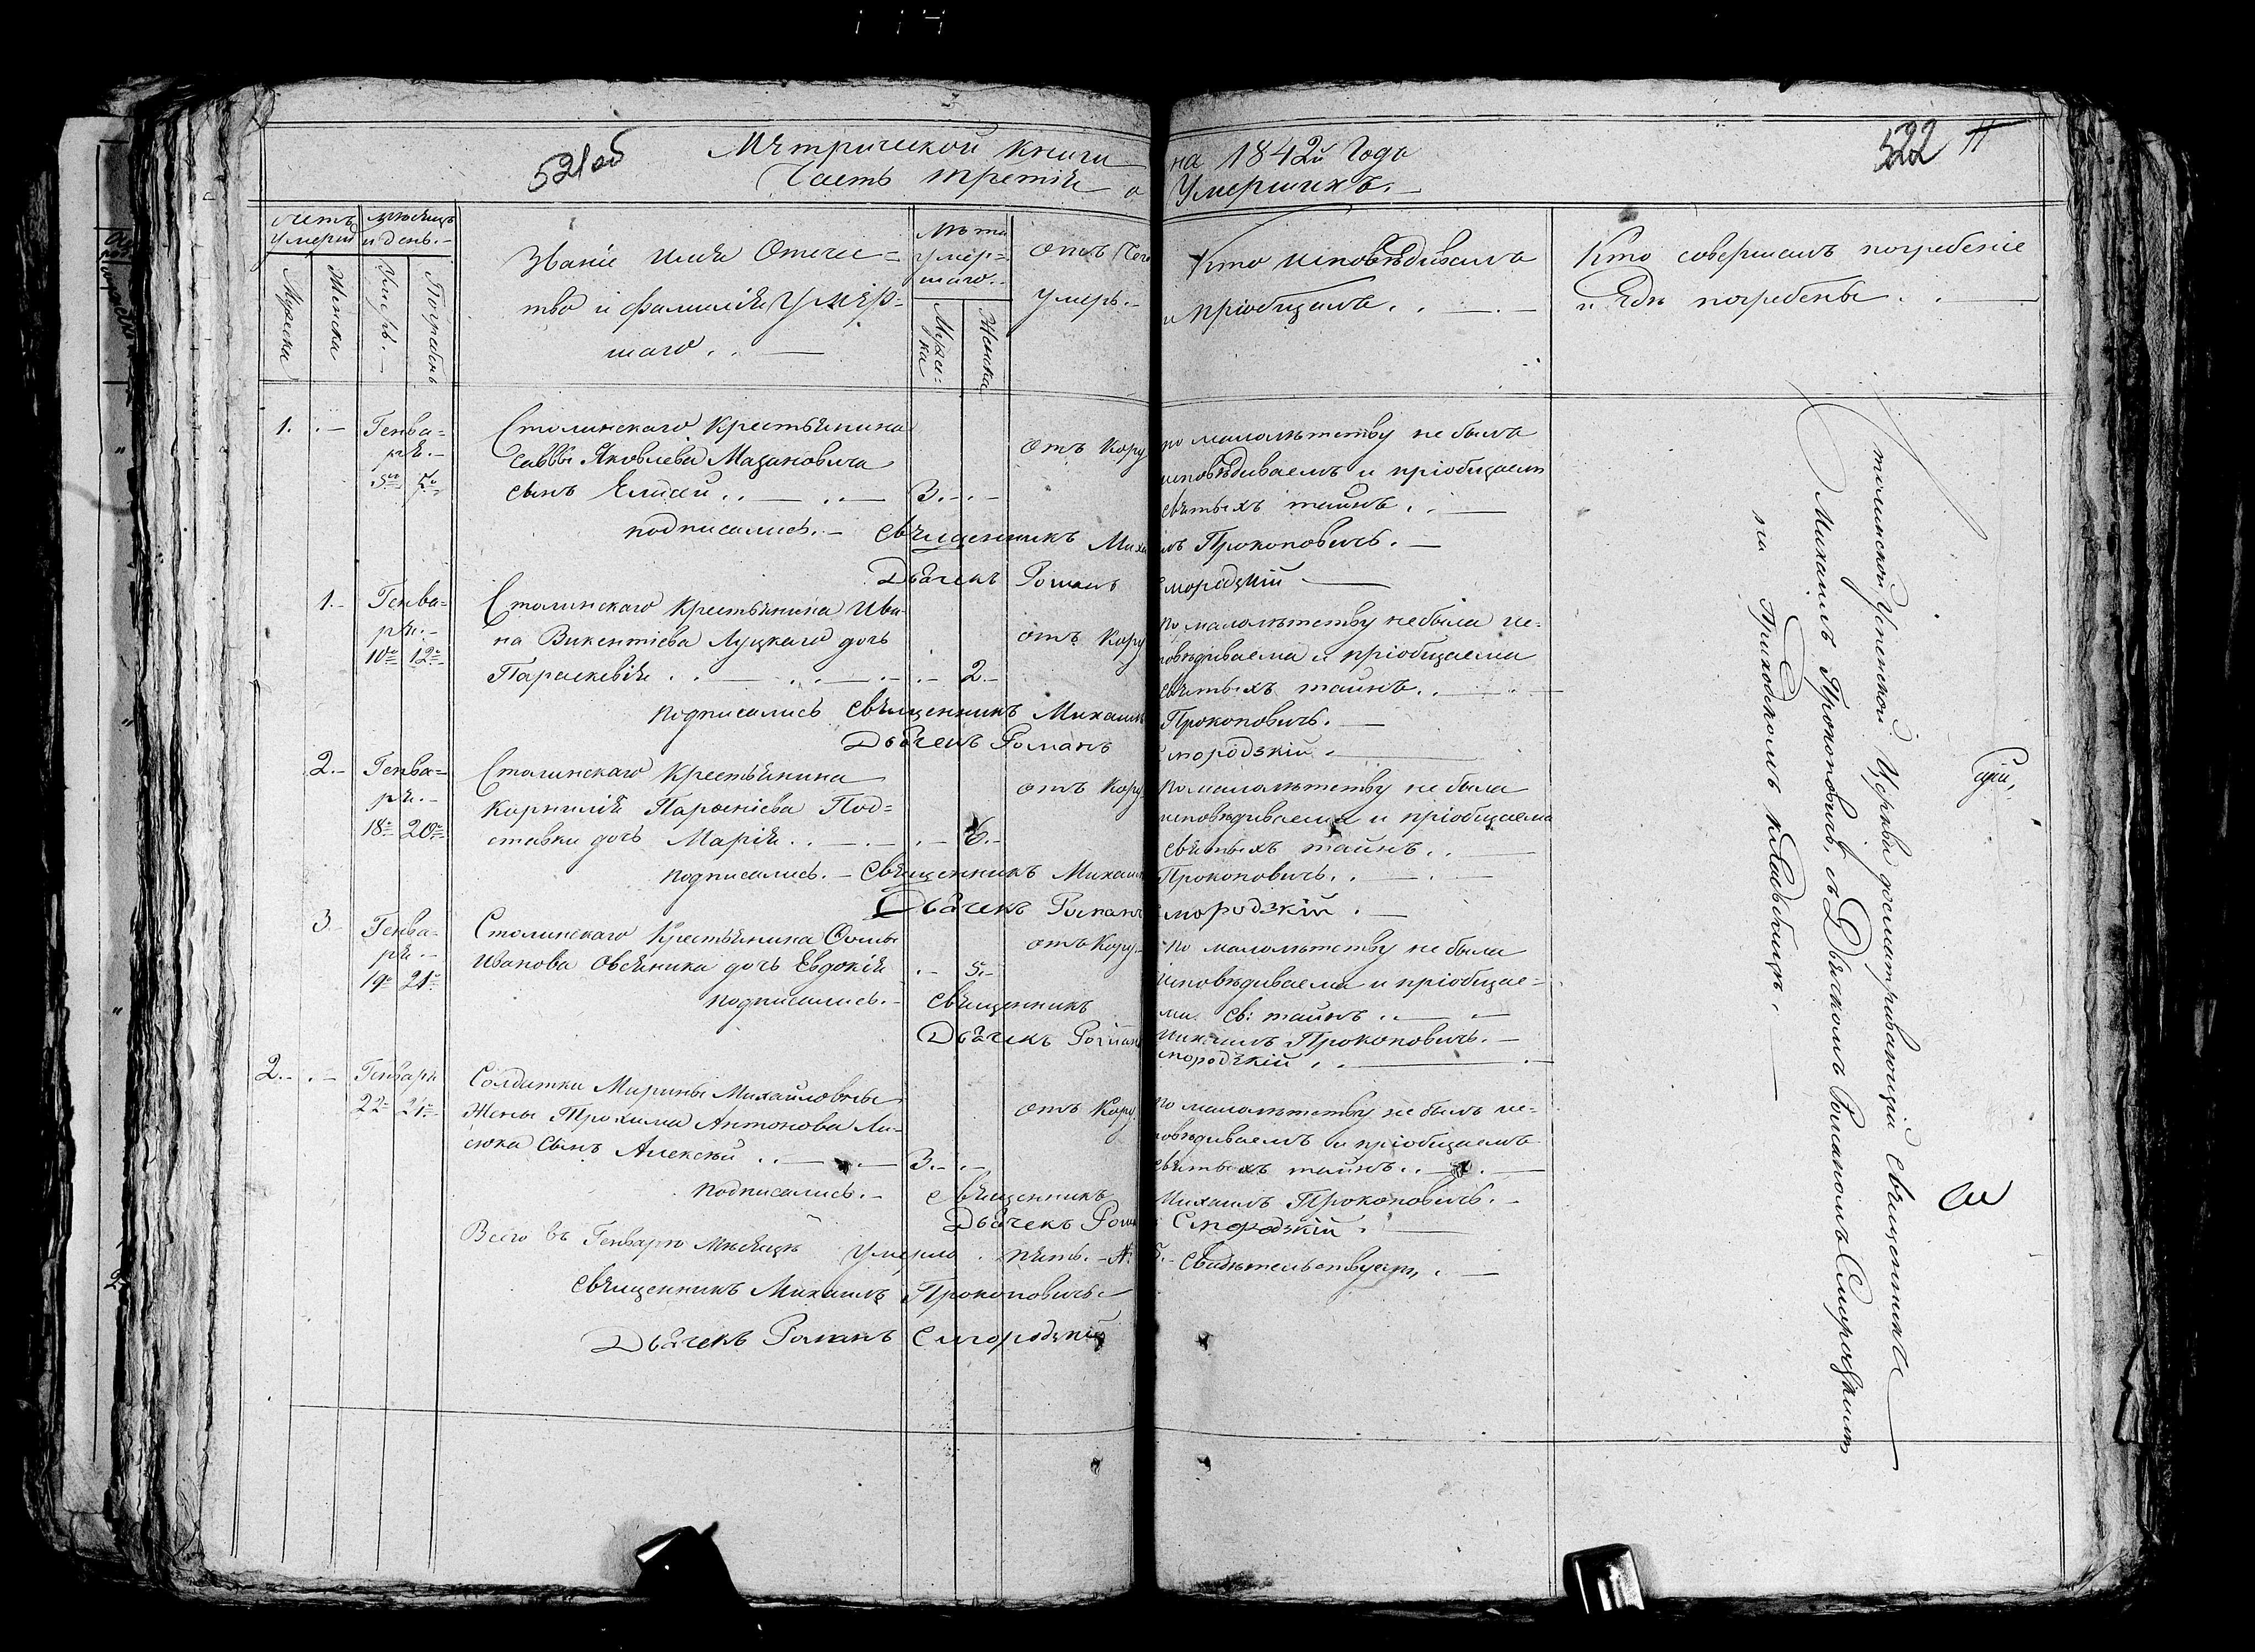 521об
Метрической книги на 1842й Года
522 11
Часть третія о Умершихъ.
счетъ умерш
мѣсяцъ и день.
Званіе имя Отече=
тво и фамилія Умер=
шаго.
Лѣта умер=
шаго.
отъ чего
умеръ.
Кто исповѣдывалъ
и пріобщалъ.
Кто совершалъ погребеніе
и гдѣ погребены
Мужска
Женска
Умеръ.
Погребенъ
Мужес=
ка
Женска
1. Генва=
ря.
5го 7го
Столинскаго Крестьянина
Саввы Яковлева Мазановича
сынъ Елисей 3.
отъ Кору
по малолѣтству не былъ
исповѣдываемъ и пріобщаемъ
святыхъ таинъ.
подписались. Священникъ Михаилъ Прокоповичъ.
Дьячекъ Романъ Смородзкій
1. Генва=
ря.
10го 12го
Столинскаго Крестьянина Ива=
на Викентіева Луцкаго дочь
Параскевія 2.
отъ Кору
по малолѣтству не была ис=
повѣдываема и пріобщаема
святыхъ таинъ.
подписались Священникъ Михаилъ Прокоповичъ.
Дьячекъ Романъ Смородзкій
2. Генва=
ря.
18го 20го
Столинскаго Крестьянина
Корнилія Парѳеніева Под=
ставки дочь Марія 6.
отъ Кору
по малолѣтству не была
исповѣдываема и пріобщаема
святыхъ таинъ.
подписались. Священникъ Михаилъ Прокоповичъ.
Дьячекъ Романъ Смородзкій
3 Генва=
ря.
19го 21го
Столинскаго Крестьянина Ѳомы
Иванова Овсяника дочь Евдокія 5.
отъ Кору
по малолѣтству не была
исповѣдываема и пріобщае=
ма св: таинъ
подписались. Священникъ Михаилъ Прокоповичъ.
Дьячекъ Романъ Смородзкій
2. Генваря
22 24
Солдатки Марины Михайловны
Жены Трохима Антонова Ли=
сюка сынъ Алексѣй 3.
отъ Кору
по малолѣтству не былъ ис=
повѣдываемъ и пріобщаемъ
святыхъ таинъ
подписались. Священникъ Михаилъ Прокоповичъ.
Дьячекъ Романъ Смородзкій
Всего въ Генварѣ мѣсяцѣ умерло пять. 5. свидѣтельствуемъ,
Священникъ Михаилъ Прокоповичъ
Дьячекъ Романъ Смородзкій
толинской Успенской Церкви Священникъ
Михаилъ Прокоповичъ, съ Дьячкомъ Романомъ Смородзкимъ
на Приходскомъ кладбищѣ.